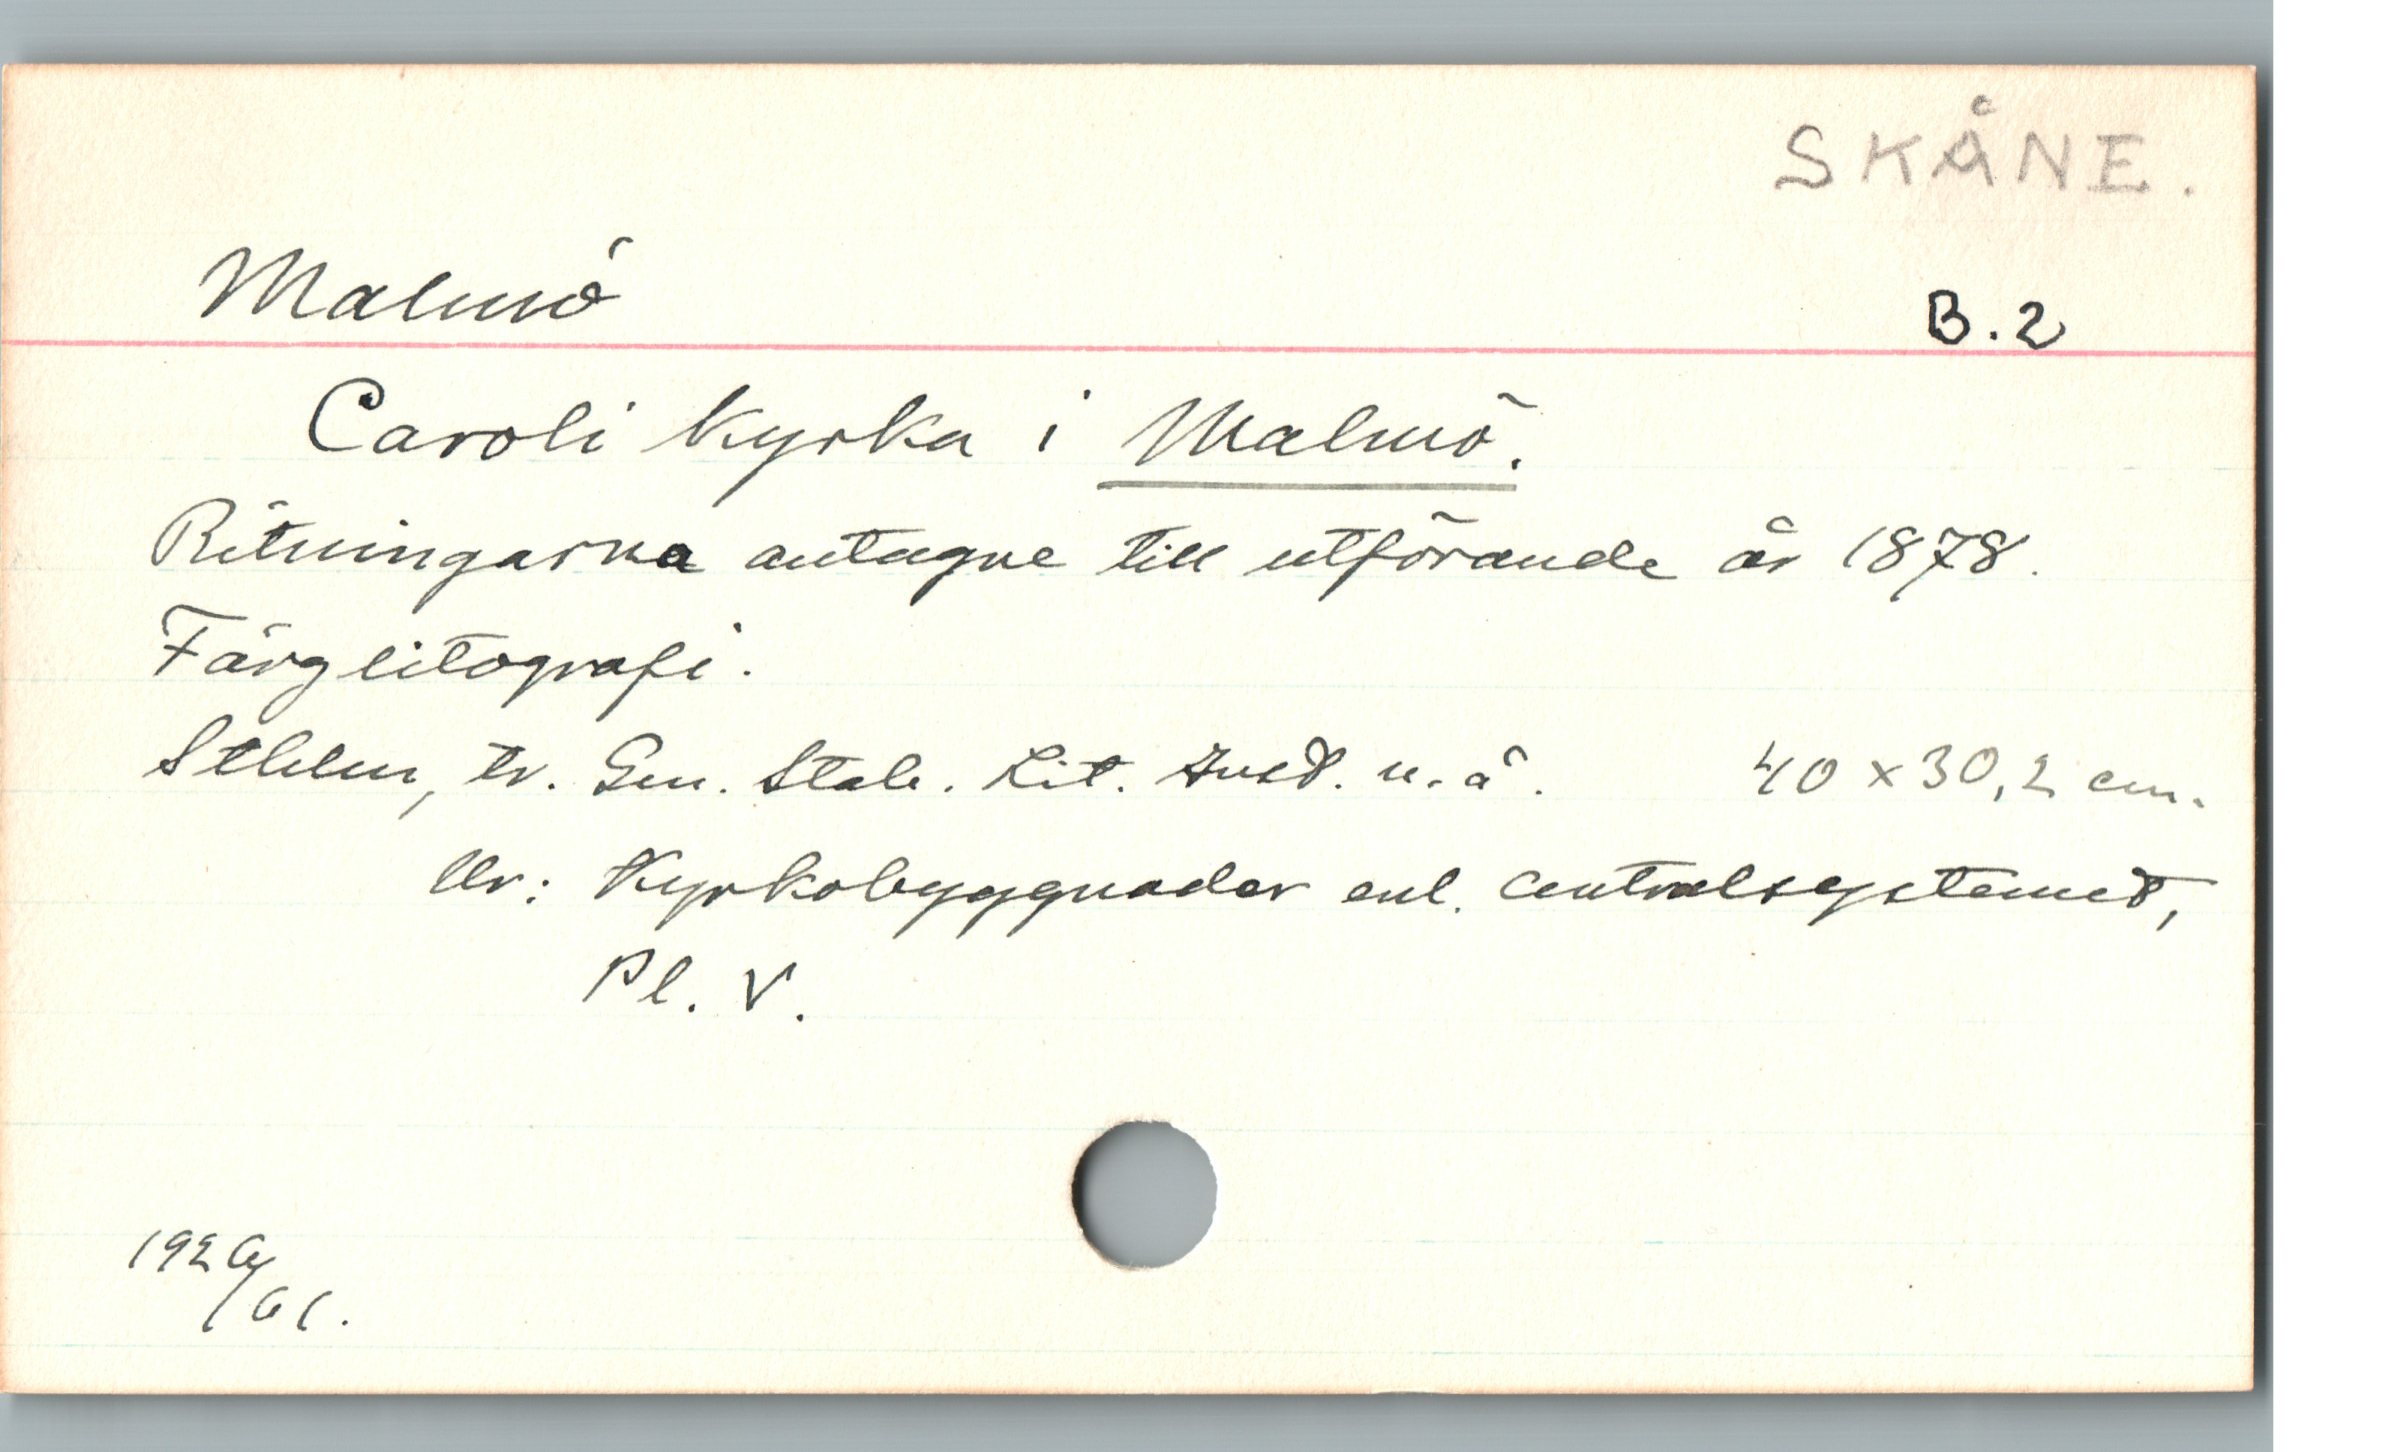 SKÅNE.
Malmö
B.2
Caroli Kyrka i Malmö.
Ritningarna antagne till utförande år 1878.
Färglitografi.
Sthlm, tr. Gen. Stab. Lit. Inst. u. å.
40 x 30,2 cm.
Ur: Kyrkobyggnader enl. centralsystemet,
Pl. V.
1926/61.